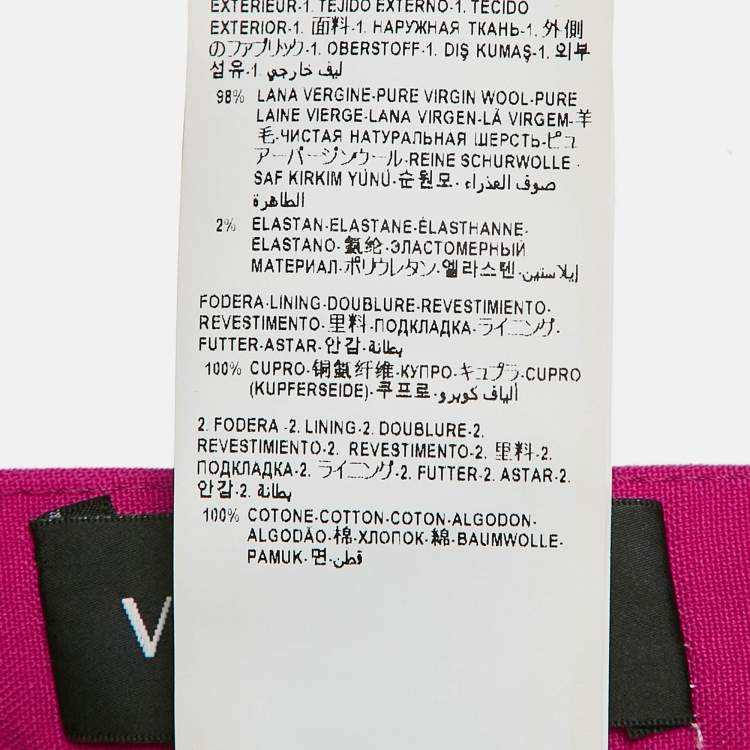 EXTÉRIEUR-1. TEJIDO EXTERNO-1. TECIDO
EXTERIOR-1. 面料-1. НАРУЖНАЯ ТКАНЬ-1. 外側
のファブリック-1. OBERSTOFF-1. DIŞ KUMAŞ-1. 외부
섬유-1. ليف خارجي
98% LANA VERGINE-PURE VIRGIN WOOL-PURE
LAINE VIERGE-LANA VIRGEN-LÃ VIRGEM-羊
毛-ЧИСТАЯ НАТУРАЛЬНАЯ ШЕРСТЬ-ピュ
アーバージンウール-REINE SCHURWOLLE-
SAF KIRKIM YÜNÜ-순원모-صوف العذراء
الطاهرة
2% ELASTAN-ELASTANE-ÉLASTHANNE-
ELASTANO-氨纶-ЭЛАСТОМЕРНЫЙ
МАТЕРИАЛ-ポリウレタン-엘라스텐-إيلاستين
FODERA-LINING-DOUBLURE-REVESTIMIENTO-
REVESTIMENTO-里料-ПОДКЛАДКА-ライニング-
FUTTER-ASTAR-안감-بطانة
100% CUPRO-铜氨纤维-КУПРО-キュプラ-CUPRO
(KUPFERSEIDE)-쿠프로-ألياف كوبرو
2. FODERA-2. LINING-2. DOUBLURE-2.
REVESTIMIENTO-2. REVESTIMENTO-2. 里料-2.
ПОДКЛАДКА-2. ライニング-2. FUTTER-2. ASTAR-2.
안감-2. بطانة
100% COTONE-COTTON-COTON-ALGODON-
ALGODÃO-棉-ХЛОПОК-綿-BAUMWOLLE-
PAMUK-면-قطن
V